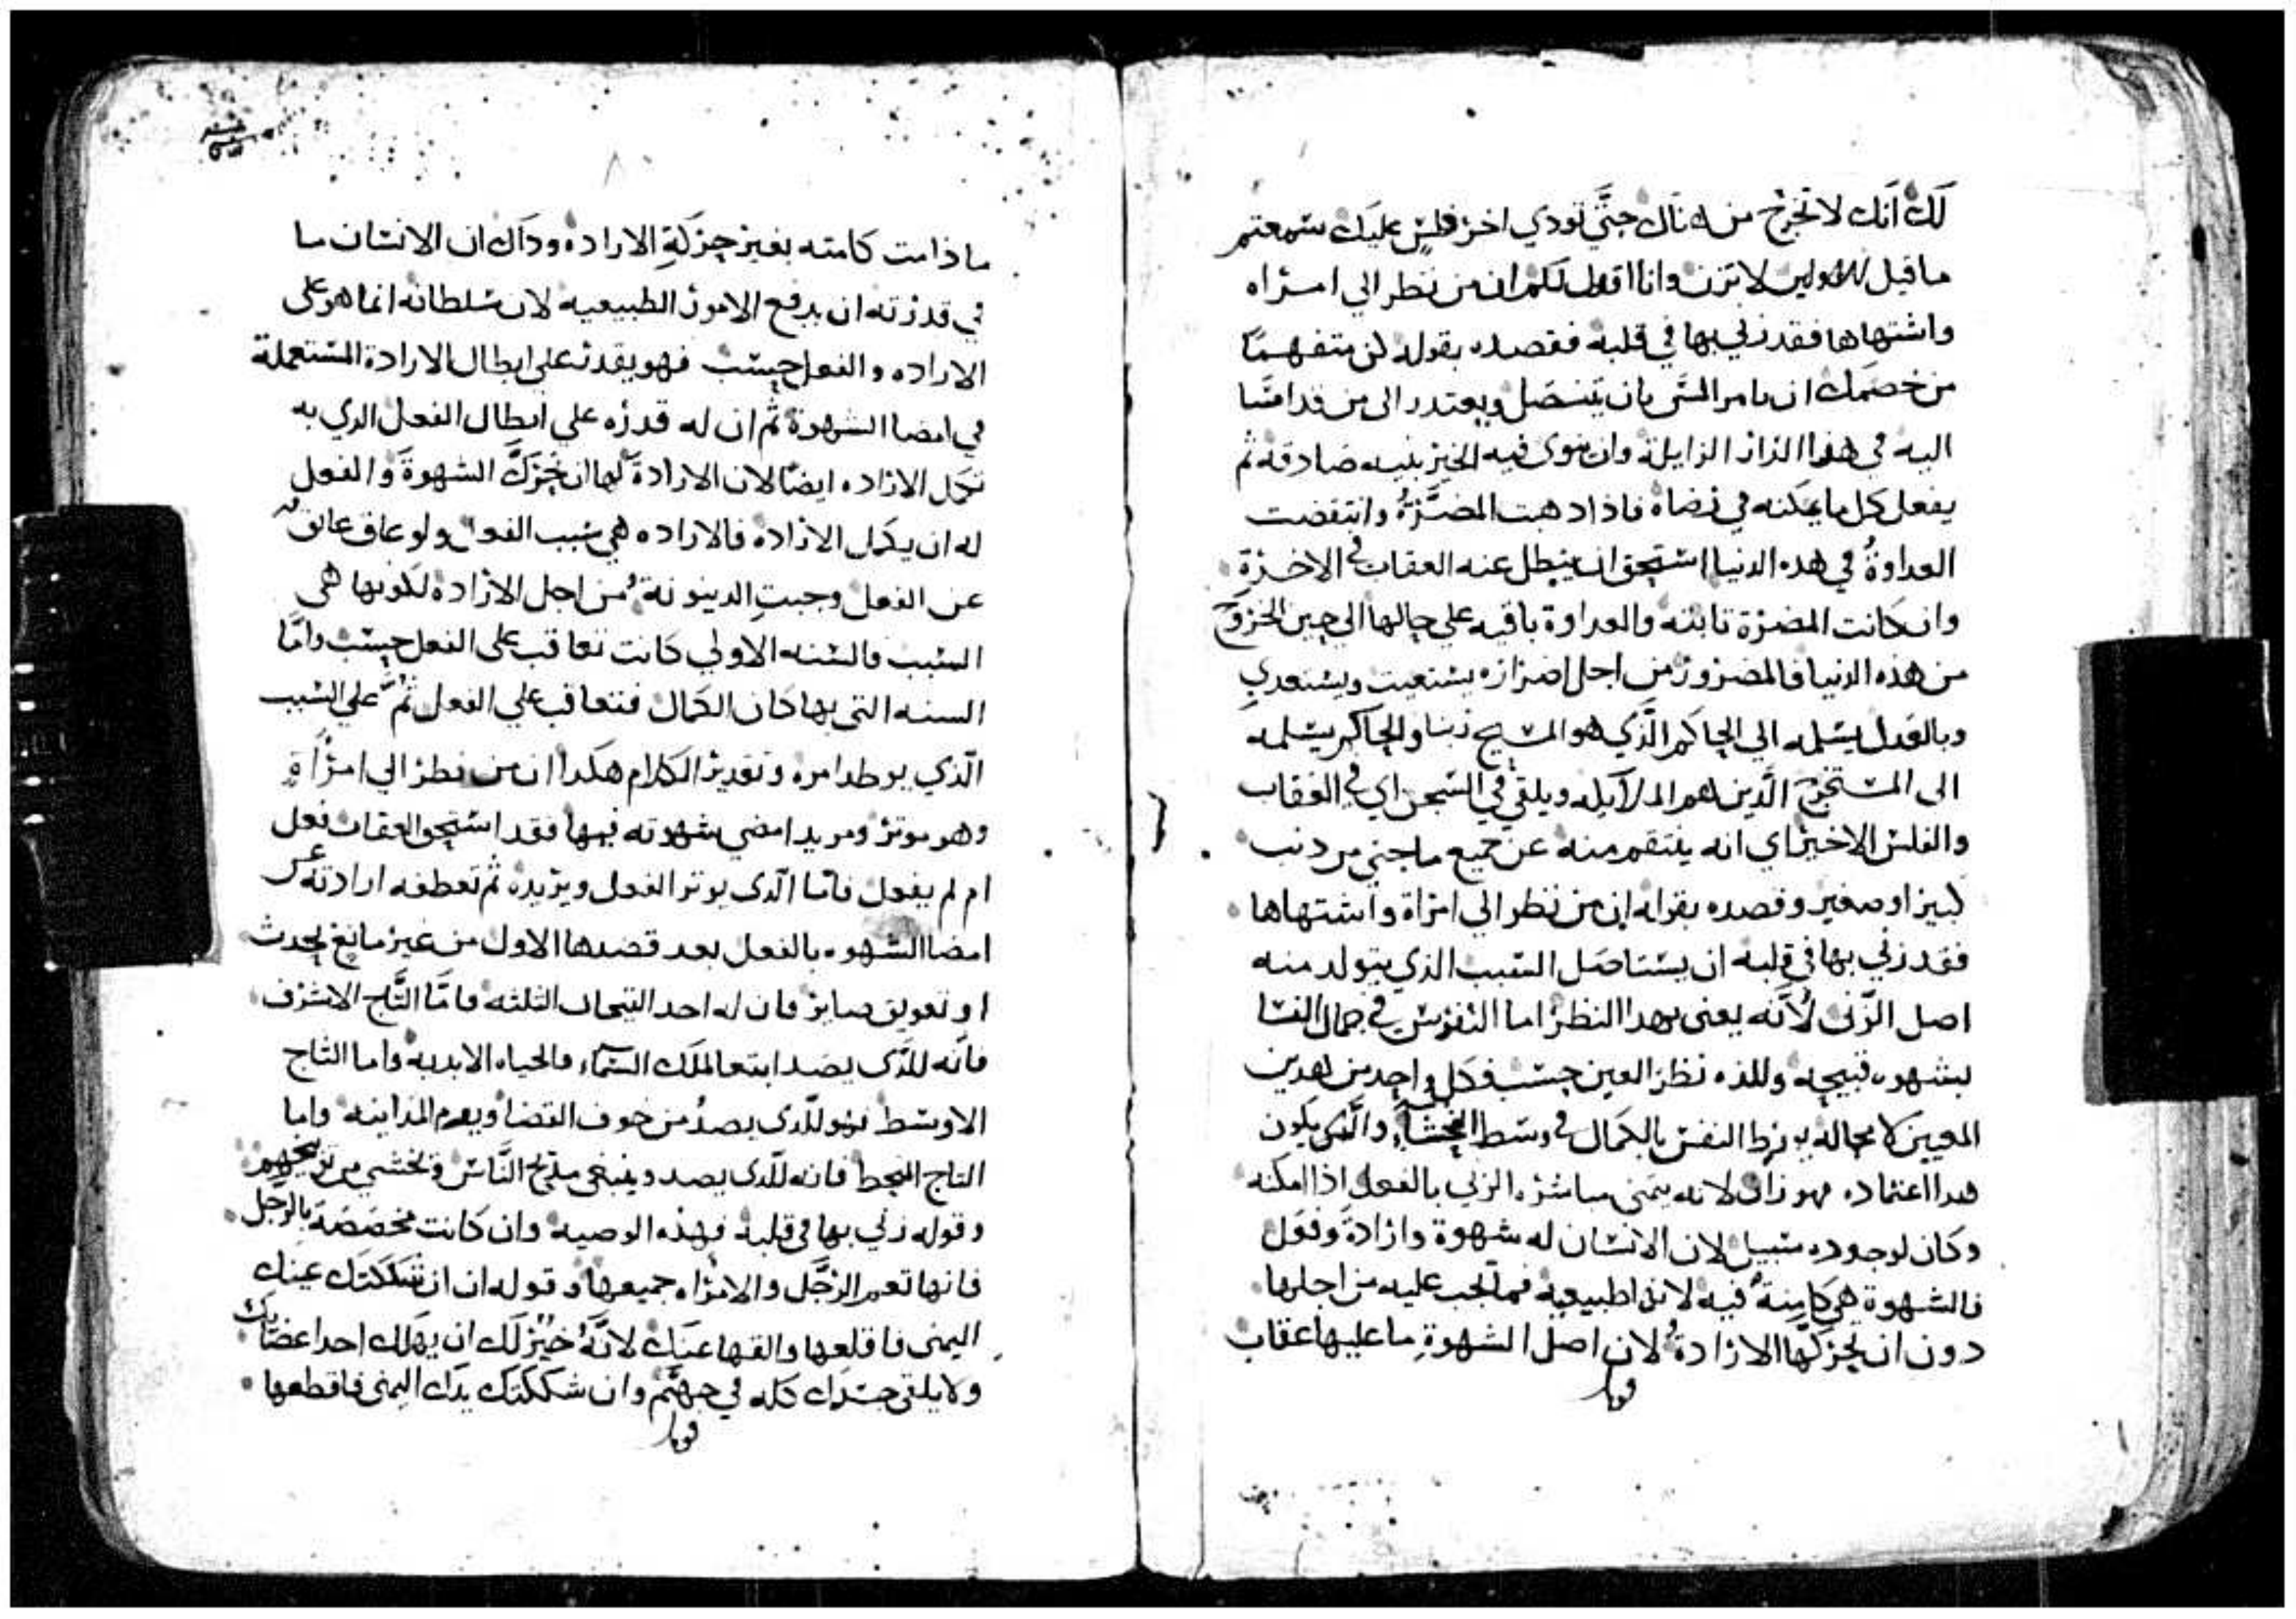 لك انك لا تخرج من هناك حتى تودي اخر فلس عليك سمعتم
ما قيل للاولين لا تزن وانا اقول لكم ان من نظر الي امراه
واشتهاها فقد زني بها في قلبه فقصده بقوله كن متفهما
من خصمك ان يامر المسي بان يتنصل ويعتدر الى من قد اسا
اليه في هذا الدار الزايلة وان ينوى فيه الخير بنيه صادقه ثم
يفعل كل ما يمكنه في رضاه فاذا دهبت المضرة وانتقضت
العداوة في هده الدنيا استحق ان يبطل عنه العقاب في الاخرة
وان كانت المضرة ثابته والعداوة باقيه علي حالها الي حين الخروج
من هذه الدنيا فالمضرور من اجل اضراره يستغيت ويستعدي
وبالعدل يسلمه الي الحاكم الذي هو المسيح ربنا والحاكم يسلمه
الى المستخرج الذين هم الملايكه ويلقي في السجن اي في العقاب
والفلس الاخير اي انه ينتقم منه عن جميع ما جني من دنب
كبير او صغير وقصده بقوله ان من نظر الي امراة واشتهاها
فقد زني بها في قلبه ان يستاصل السبب الذي يتولد منه
اصل الزنى لانه يعنى بهدا النظر اما التفرس في جمال النسا
بشهوه قبيحه وللذه نظر العين حسب فكل واحد من هدين
المعنيين لا محاله يورط النفس بالكمال في وسط الفحشاء والذى يكون
هدا اعتماده فهو زان لانه يتمنى مباشره الزني بالفعل اذا امكنه
وكان لوجوده سبيل لان الانسان له شهوة وارادة وفعل
فالشهوة هي كامنة فيه لانها طبيعية فما تجب عليه من اجلها
دون ان تحركها الارادة لان اصل الشهوة ما عليها عقاب
ما دامت كامنه بغير حركة الاراده وداك ان الانسان ما
في قدرته ان يدفع الامور الطبيعيه لان سلطانه انما هو على
الاراده والفعل حسب فهو يقدر علي ابطال الارادة المستعملة
في امضا الشهوة ثم ان له قدره علي ابطال الفعل الدي به
تكمل الاراده ايضا لان الارادة لها ان تحرك الشهوة والفعل
له ان يكمل الاراده فالاراده هي سبب الفعل ولو عاق عايق
عن الفعل وجبت الدينونة من اجل الاراده لكونها هى
السبب فالسنه الاولي كانت تعاقب على الفعل حسب واما
السنه التى بها كان الكمال فتعاقب علي الفعل ثم علي السبب
الذي يوطد امره وتقدير الكلام هكدا ان من نظر الي امراة
وهو موثر ومريد امضي شهوته فيها فقد استحق العقاب فعل
ام لم يفعل فاما الذى يوثر الفعل ويريده ثم تعطفه ارادته عن
امضا الشهوه بالفعل بعد قصدها الاول من غير مانع يحدث
او تعويق صاير فان له احد التيجان الثلثه فاما التاج الاشرف
فانه للذى يصد ابتغا لملك السماء والحياه الابديه واما التاج
الاوسط فهو للذى يصد من خوف القضا ويوم المداينه واما
التاج المنحط فانه للذى يصد ويبتغي مديح الناس ويخشي من توبيخهم
وقوله زني بها في قلبه فهذه الوصيه وان كانت مخصصة بالرجل
فانها تعم الرجل والامراه جميعها وقوله ان ان شككتك عينك
اليمنى فاقلعها والقها عنك لانه خير لك ان يهلك احد اعضايك
ولا يلقى جسدك كله في جهنم وان شككتك يدك اليمنى فاقطعها